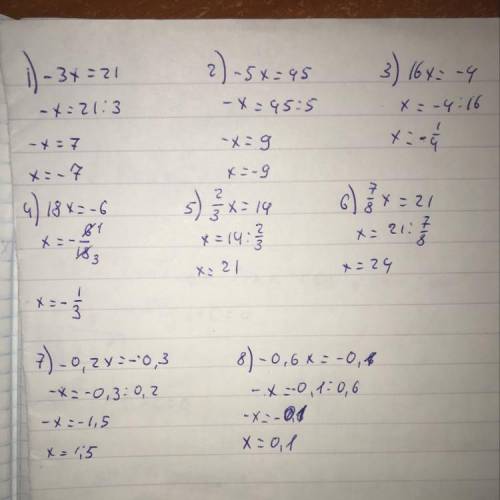 1) -3x=21
-x=21:3
-x=7
x=-7
2) -5x=45
-x=45:5
-x=9
x=-9
3) 16x=-4
x=-4:16
x=-1/4
4) 18x=-6
x=-6/18 1 3
x=-1/3
5) 2/3 x=14
x=14:2/3
x=21
6) 7/8 x=21
x=21:7/8
x=24
7) -0,2x=-0,3
-x=-0,3:0,2
-x=-1,5
x=1,5
8) -0,6x=-0,1
-x=-0,1:0,6
-x=-0,1
x=0,1